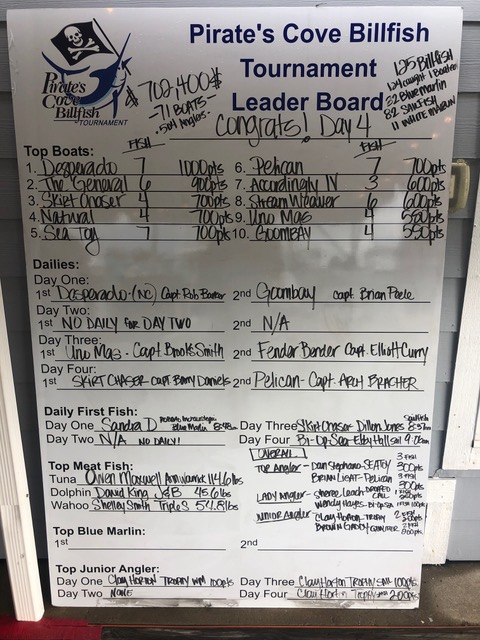 Pirate's Cove Billfish
Tournament
Leader Board
Pirate's
Cove
Billfish
TOURNAMENT
$702,400$
-71 BOATS-
-504 Anglers-
125 Billfish
124 caught 1 Boated
32 Blue Marlin
82 Sailfish
11 White Marlin
Congrats! Day 4
Top Boats: FISH FISH
1. Desperado 7 1000pts 6. Pelican 7 700pts
2. The General 6 900pts 7. Accordingly IV 3 600pts
3. Skirt Chaser 4 700pts 8. Stream Weaver 6 600pts
4. Natural 4 700pts 9. Uno Mas 4 550pts
5. Sea Toy 7 700pts 10. Goombay 4 550pts
Dailies:
Day One:
1st Desperado-(NC) Capt Rob Barker 2nd Goombay capt. Brian Peele
Day Two:
1st NO DAILY for DAY TWO 2nd N/A
Day Three:
1st Uno Mas - Capt. Brooks Smith 2nd Fender Bender Capt. Elliott Curry
Day Four:
1st SKIRT CHASER - CAPT Barry Daniels 2nd Pelican - Capt. Arch BRACHER
Daily First Fish:
Day One Sandra D Blue Marlin 8:48 Day Three Skirt Chaser Dillon Jones Sailfish 8:37
Day Two N/A NO DAILY! Day Four Bi-Op Sea - Eby Hall sail 9:06am
OVERALL
Top Angler - Dan Stephano - SEATOY 3 FISH 300pts
BRIAN LIGHT - Pelican 3 FISH 300pts
LADY Angler - Sheree Leach DROPPED CALL
Wendy Hayes - Bi-Op Sea 1 FISH 100pts
JUNIOR Angler - Clay Horton - TROPHY 2 FISH
Brown Gaddy - QUALIFIER 2 FISH 200pts
Top Meat Fish:
Tuna Owen Maxwell Ann Warrick 114.6 lbs
Dolphin David King J&B 45.6 lbs
Wahoo Shelley Smith Triple S 54.8 lbs
Top Blue Marlin:
1st 2nd
Top Junior Angler:
Day One Clay Horton TROPHY WM 100pts Day Three Clay Horton Trophy sail 100pts
Day Two NONE Day Four Clay Horton Trophy sail 200pts